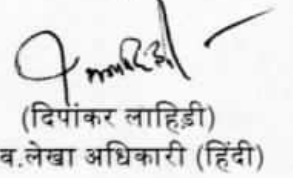 (दिपांकर लाहिड़ी)
व.लेखा अधिकारी (हिंदी)